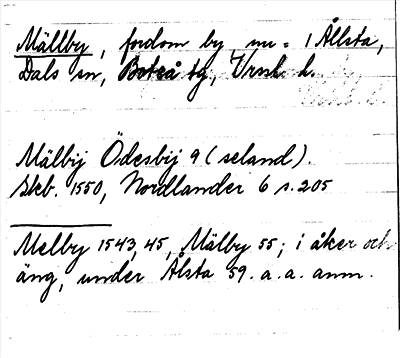 Mällby, fordom by, nu = 1 Ållsta,
Dals sn, Boteå tg, Vrnl. l.
Mälbij Ödesbij 9 (seland).
Skb. 1550, Nordlander 6 s. 205
Melby 1543, 45, Mälby 55; i åker och
äng, under Ålsta 59. a. a. anm.